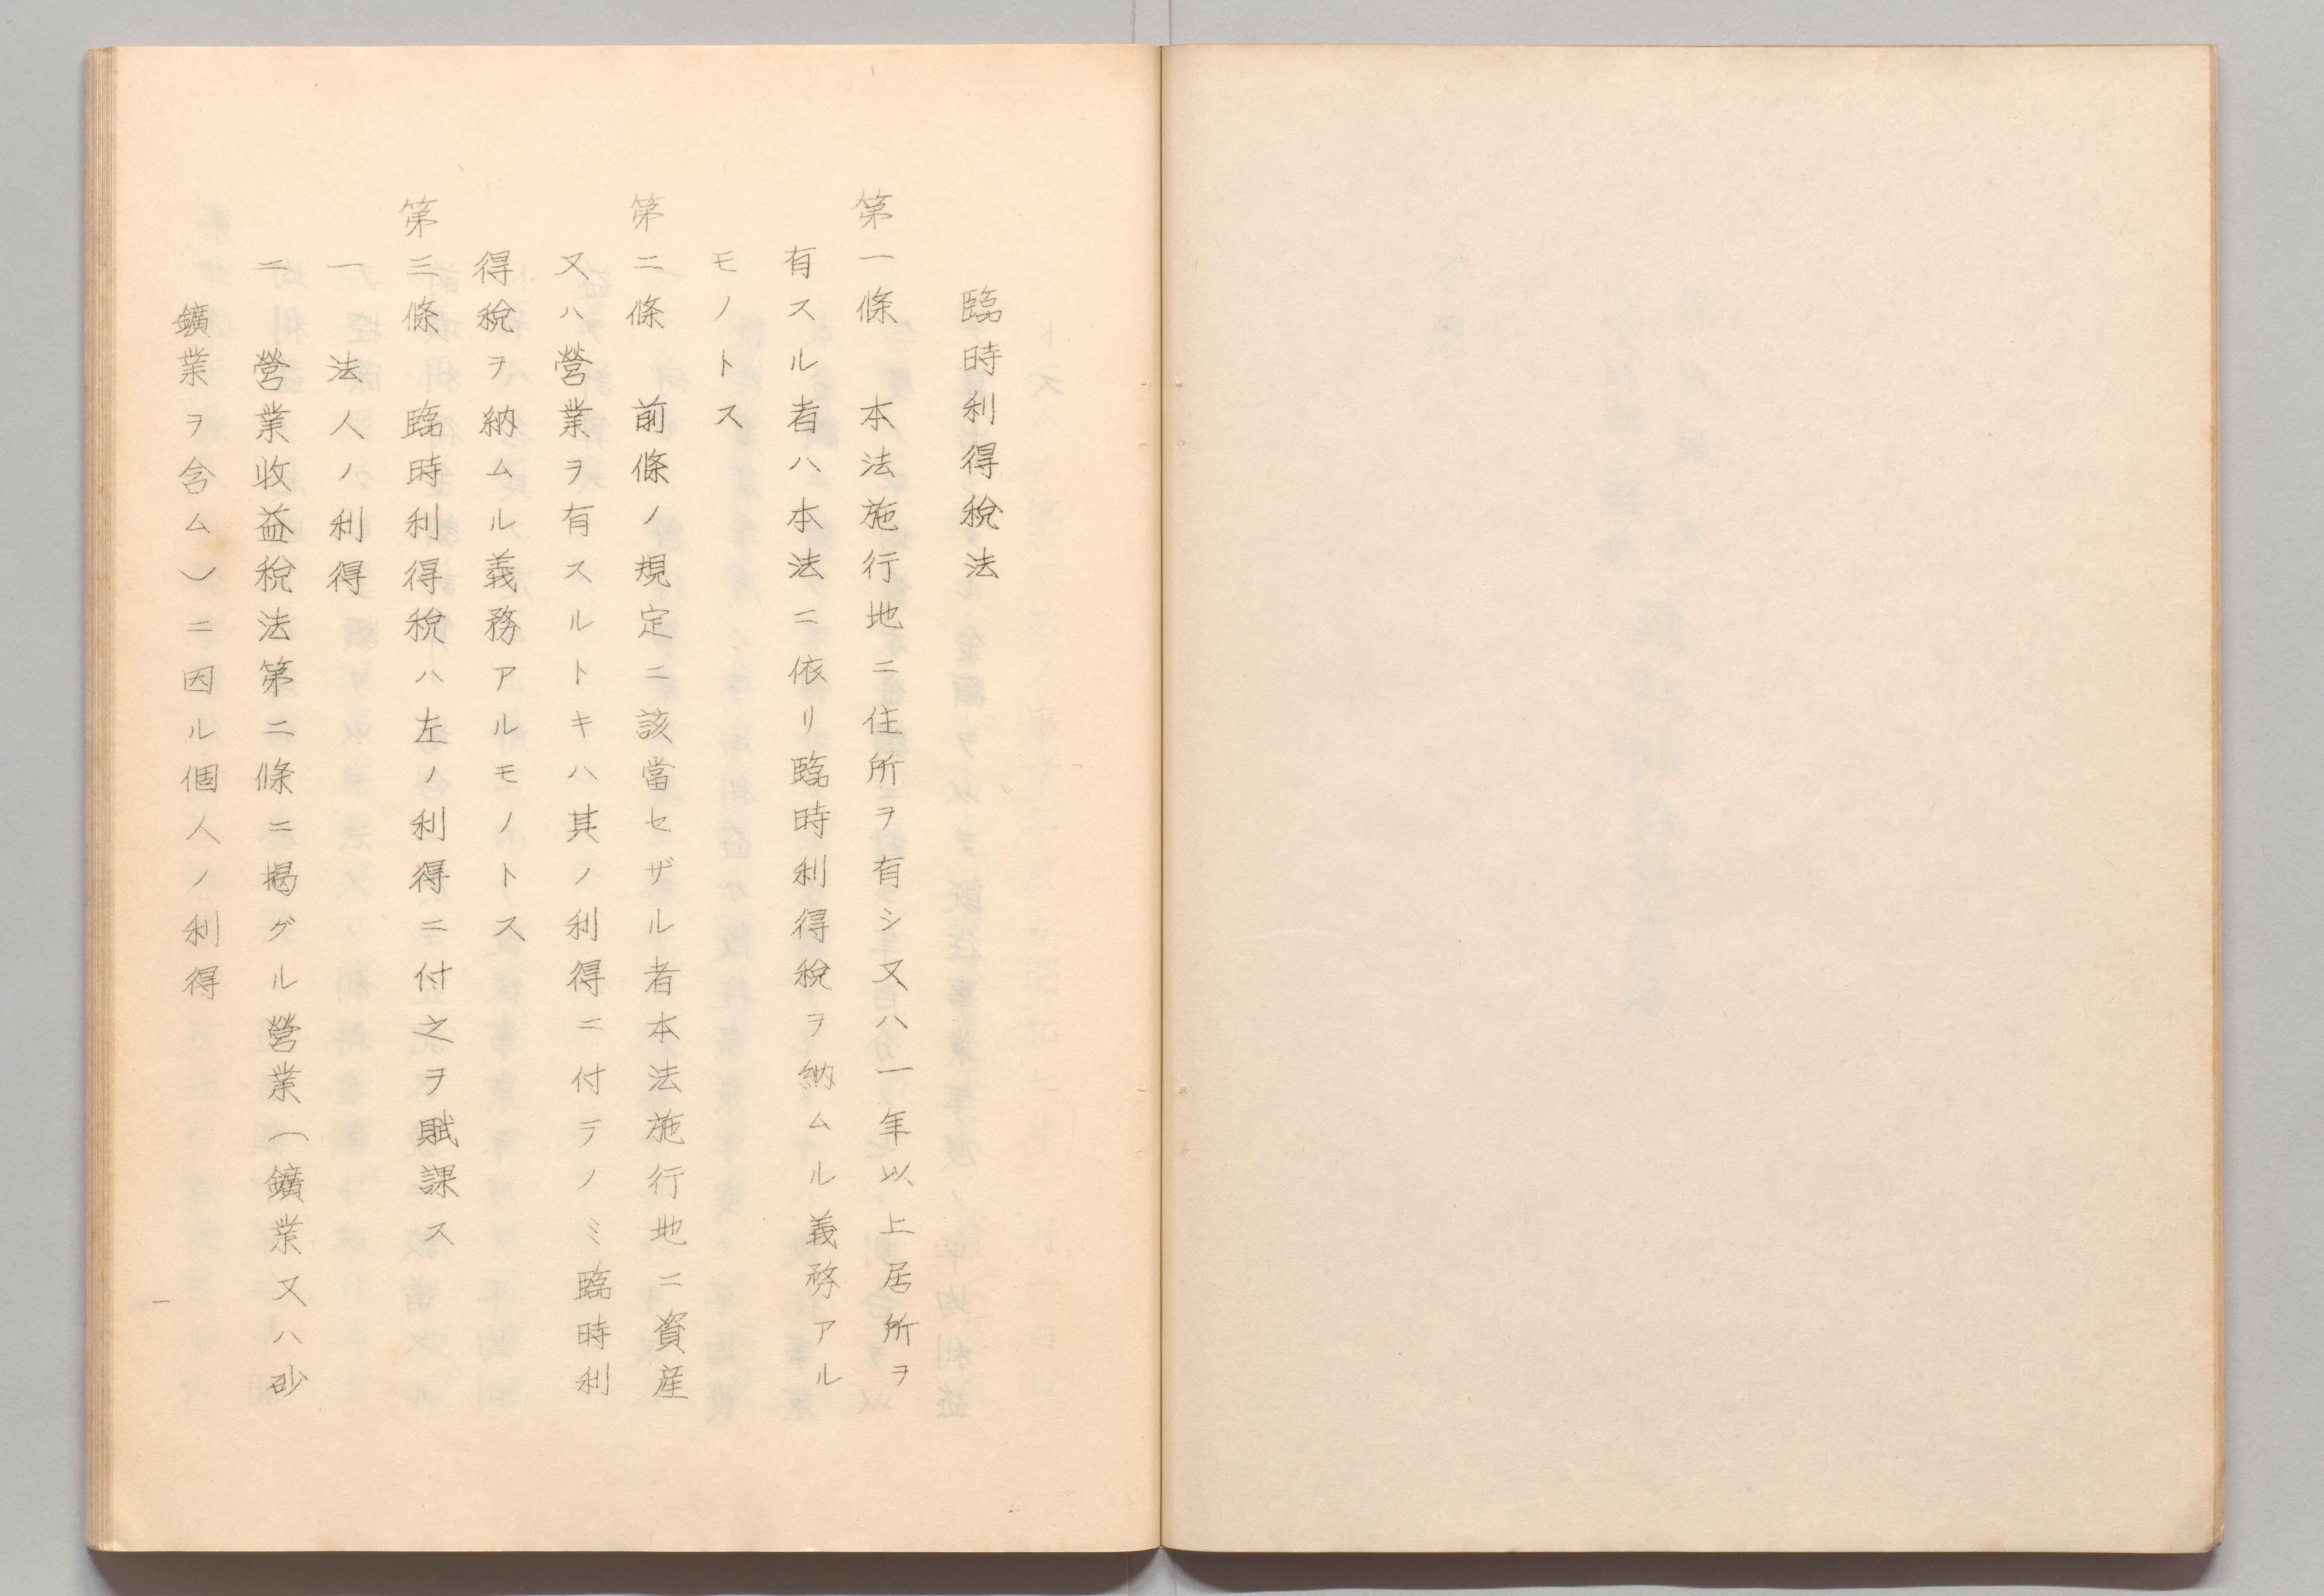 臨時利得稅法
第一條　本法施行地ニ住所ヲ有シ又ハ一年以上居所ヲ
有スル者ハ本法ニ依リ臨時利得稅ヲ納ムル義務アル
モノトス
第二條　前條ノ規定ニ該當セザル者本法施行地ニ資産
又ハ營業ヲ有スルトキハ其ノ利得ニ付テノミ臨時利
得稅ヲ納ムル義務アルモノトス
第三條　臨時利得稅ハ左ノ利得ニ付之ヲ賦課ス
一　法人ノ利得
二　營業收益稅法第二條ニ揭グル營業（鑛業又ハ砂
鑛業ヲ含ム）ニ因ル個人ノ利得
一